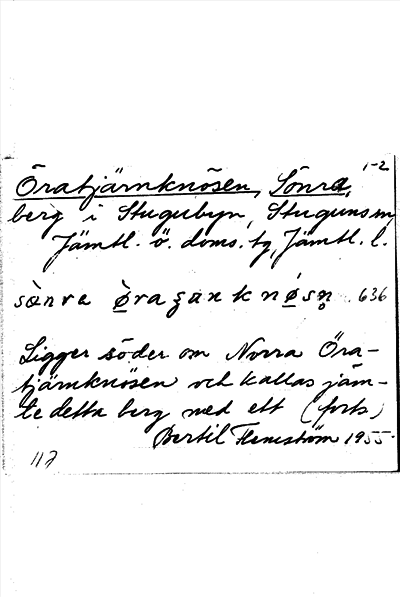 1-2
Öratjärnknösen, Sönra,
berg i Stugubyn, Stuguns sn,
Jämtl. ö. doms. tg, Jämtl. l.
636
Ligger söder om Norra Öra-
tjärnknösen och kallas jäm-
te detta berg med ett (forts)
Bertil Flemström 1955.
117